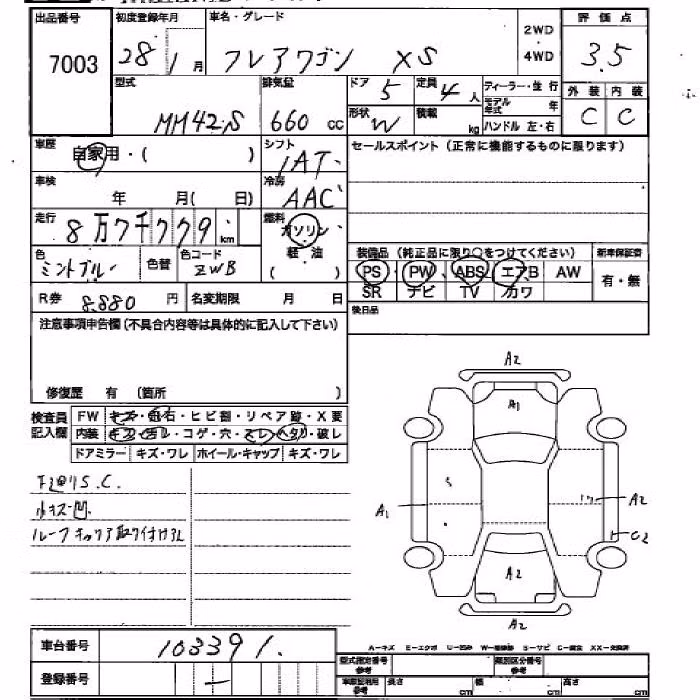 出品番号 初度登録年月 車名・グレード 2WD 評価点
7003 28 1月 フレアワゴン XS ・ 4WD 3.5
型式 排気量 ドア 5 定員 4人 ディーラー・並行 外装 内装
MM42S 660 cc 形状 W 積載 kg モデル年式 年 C C
ハンドル 左・右
車歴 自家用・( ) シフト 1AT セールスポイント(正常に機能するものに限ります)
車検 年 月( 日) 冷房 AAC
走行 8万7千779 km 燃料 ガソリン
色 ミントブルー 色替 色コード ZWB ( 軽・油 ) 装備品(純正品に限り○をつけてください) 新車保証書
PS PW ABS エアB AW 有・無
R券 8.880 円 名変期限 月 日 SR ナビ TV カワ
注意事項申告欄(不具合内容等は具体的に記入して下さい) 後日品
修復歴 有 (箇所 )
検査員記入欄 FW キズ・飛石・ヒビ割・リペア跡・X要
内装 キズ・汚レ・コゲ・穴・スレ・ヘタリ・破レ
ドアミラー キズ・ワレ ホイール・キャップ キズ・ワレ
S.C.
小キズ凹
ルーフキャリア取り付けアリ
A2
A1
S
A1 A2
C2
A2
A2
車台番号 103391
登録番号 ー
A－キズ E－エクボ U－凹み W－補修跡 S－サビ C－腐食 XX－交換済
型式指定番号 参考 類別区分番号 参考
車検証利用 参考 長さ cm 幅 cm 高さ cm